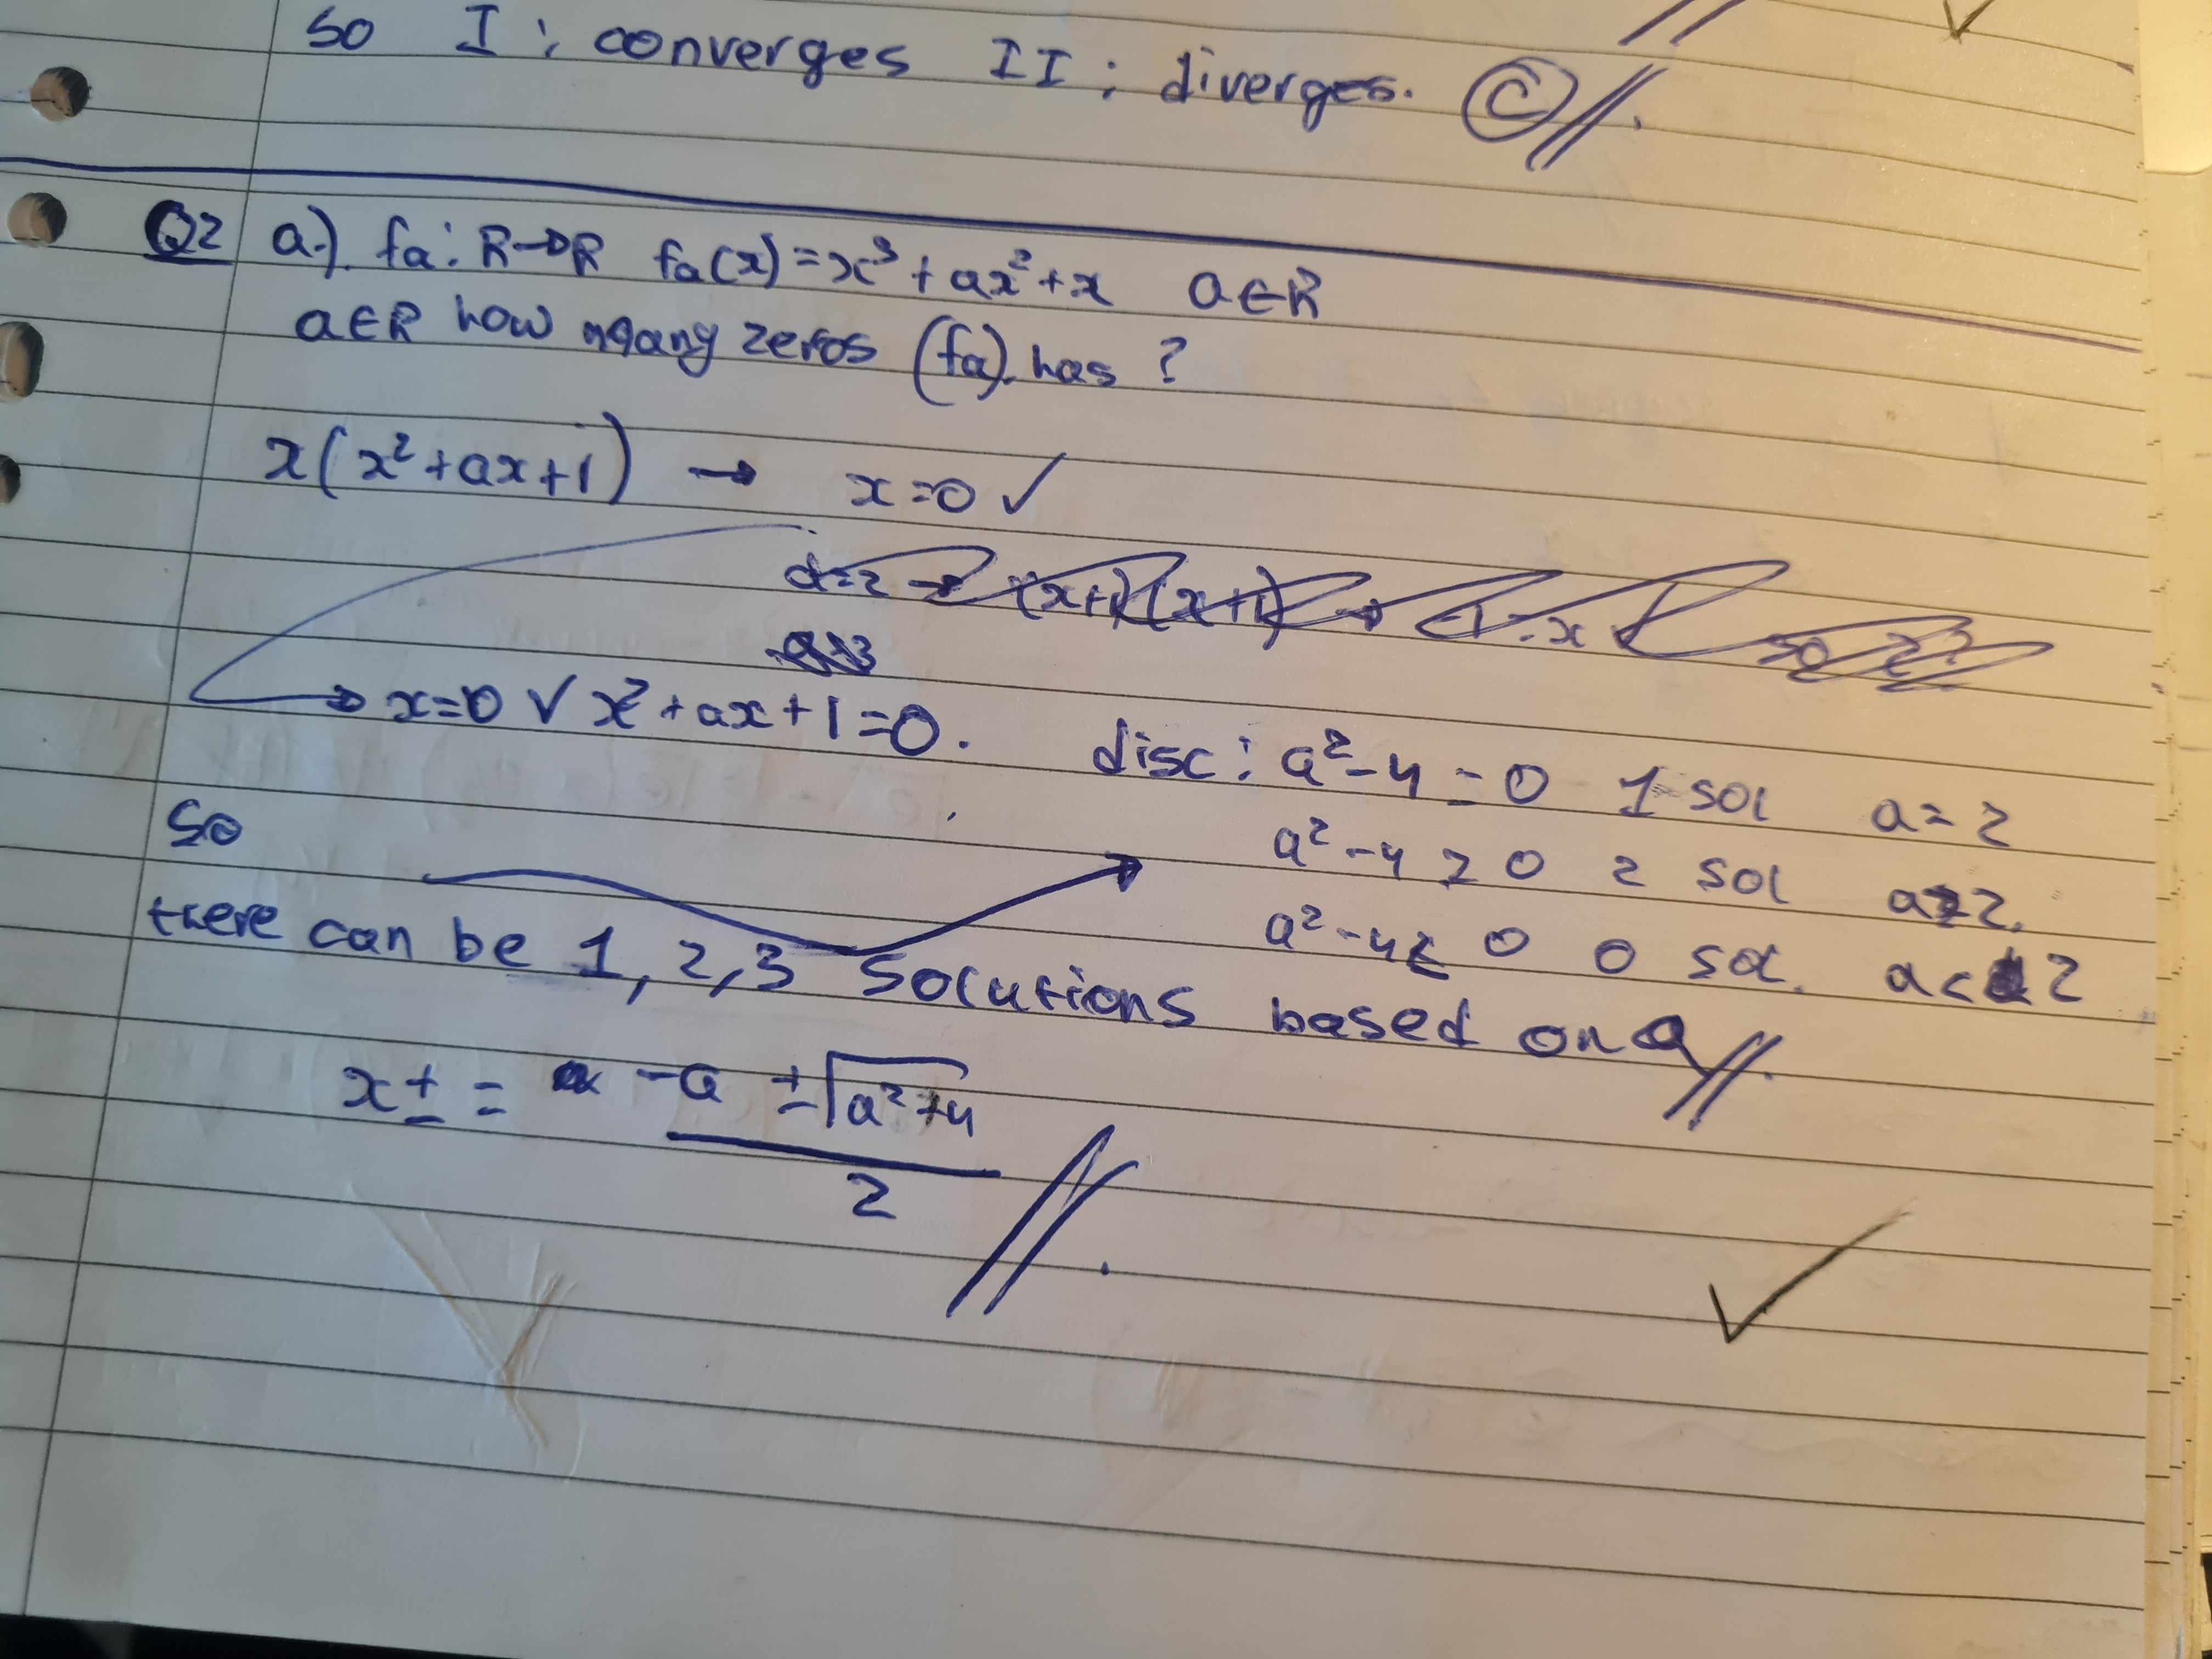 so I: converges II: diverges. (C)//.
Q2 a.) fa: R→R fa(x)=x³+ax²+x a∈R
a∈R how many zeros (fa). has ?
x(x²+ax+1) → x=0 ✓
→ x=0 ∨ x²+ax+1=0. disc: a²-4=0 1 sol a=2
a²-4>0 2 sol a>2.
a²-4<0 0 sol. a<2
so
there can be 1,2,3 solutions based on a//.
x± = -a ±√a²-4
2 //.